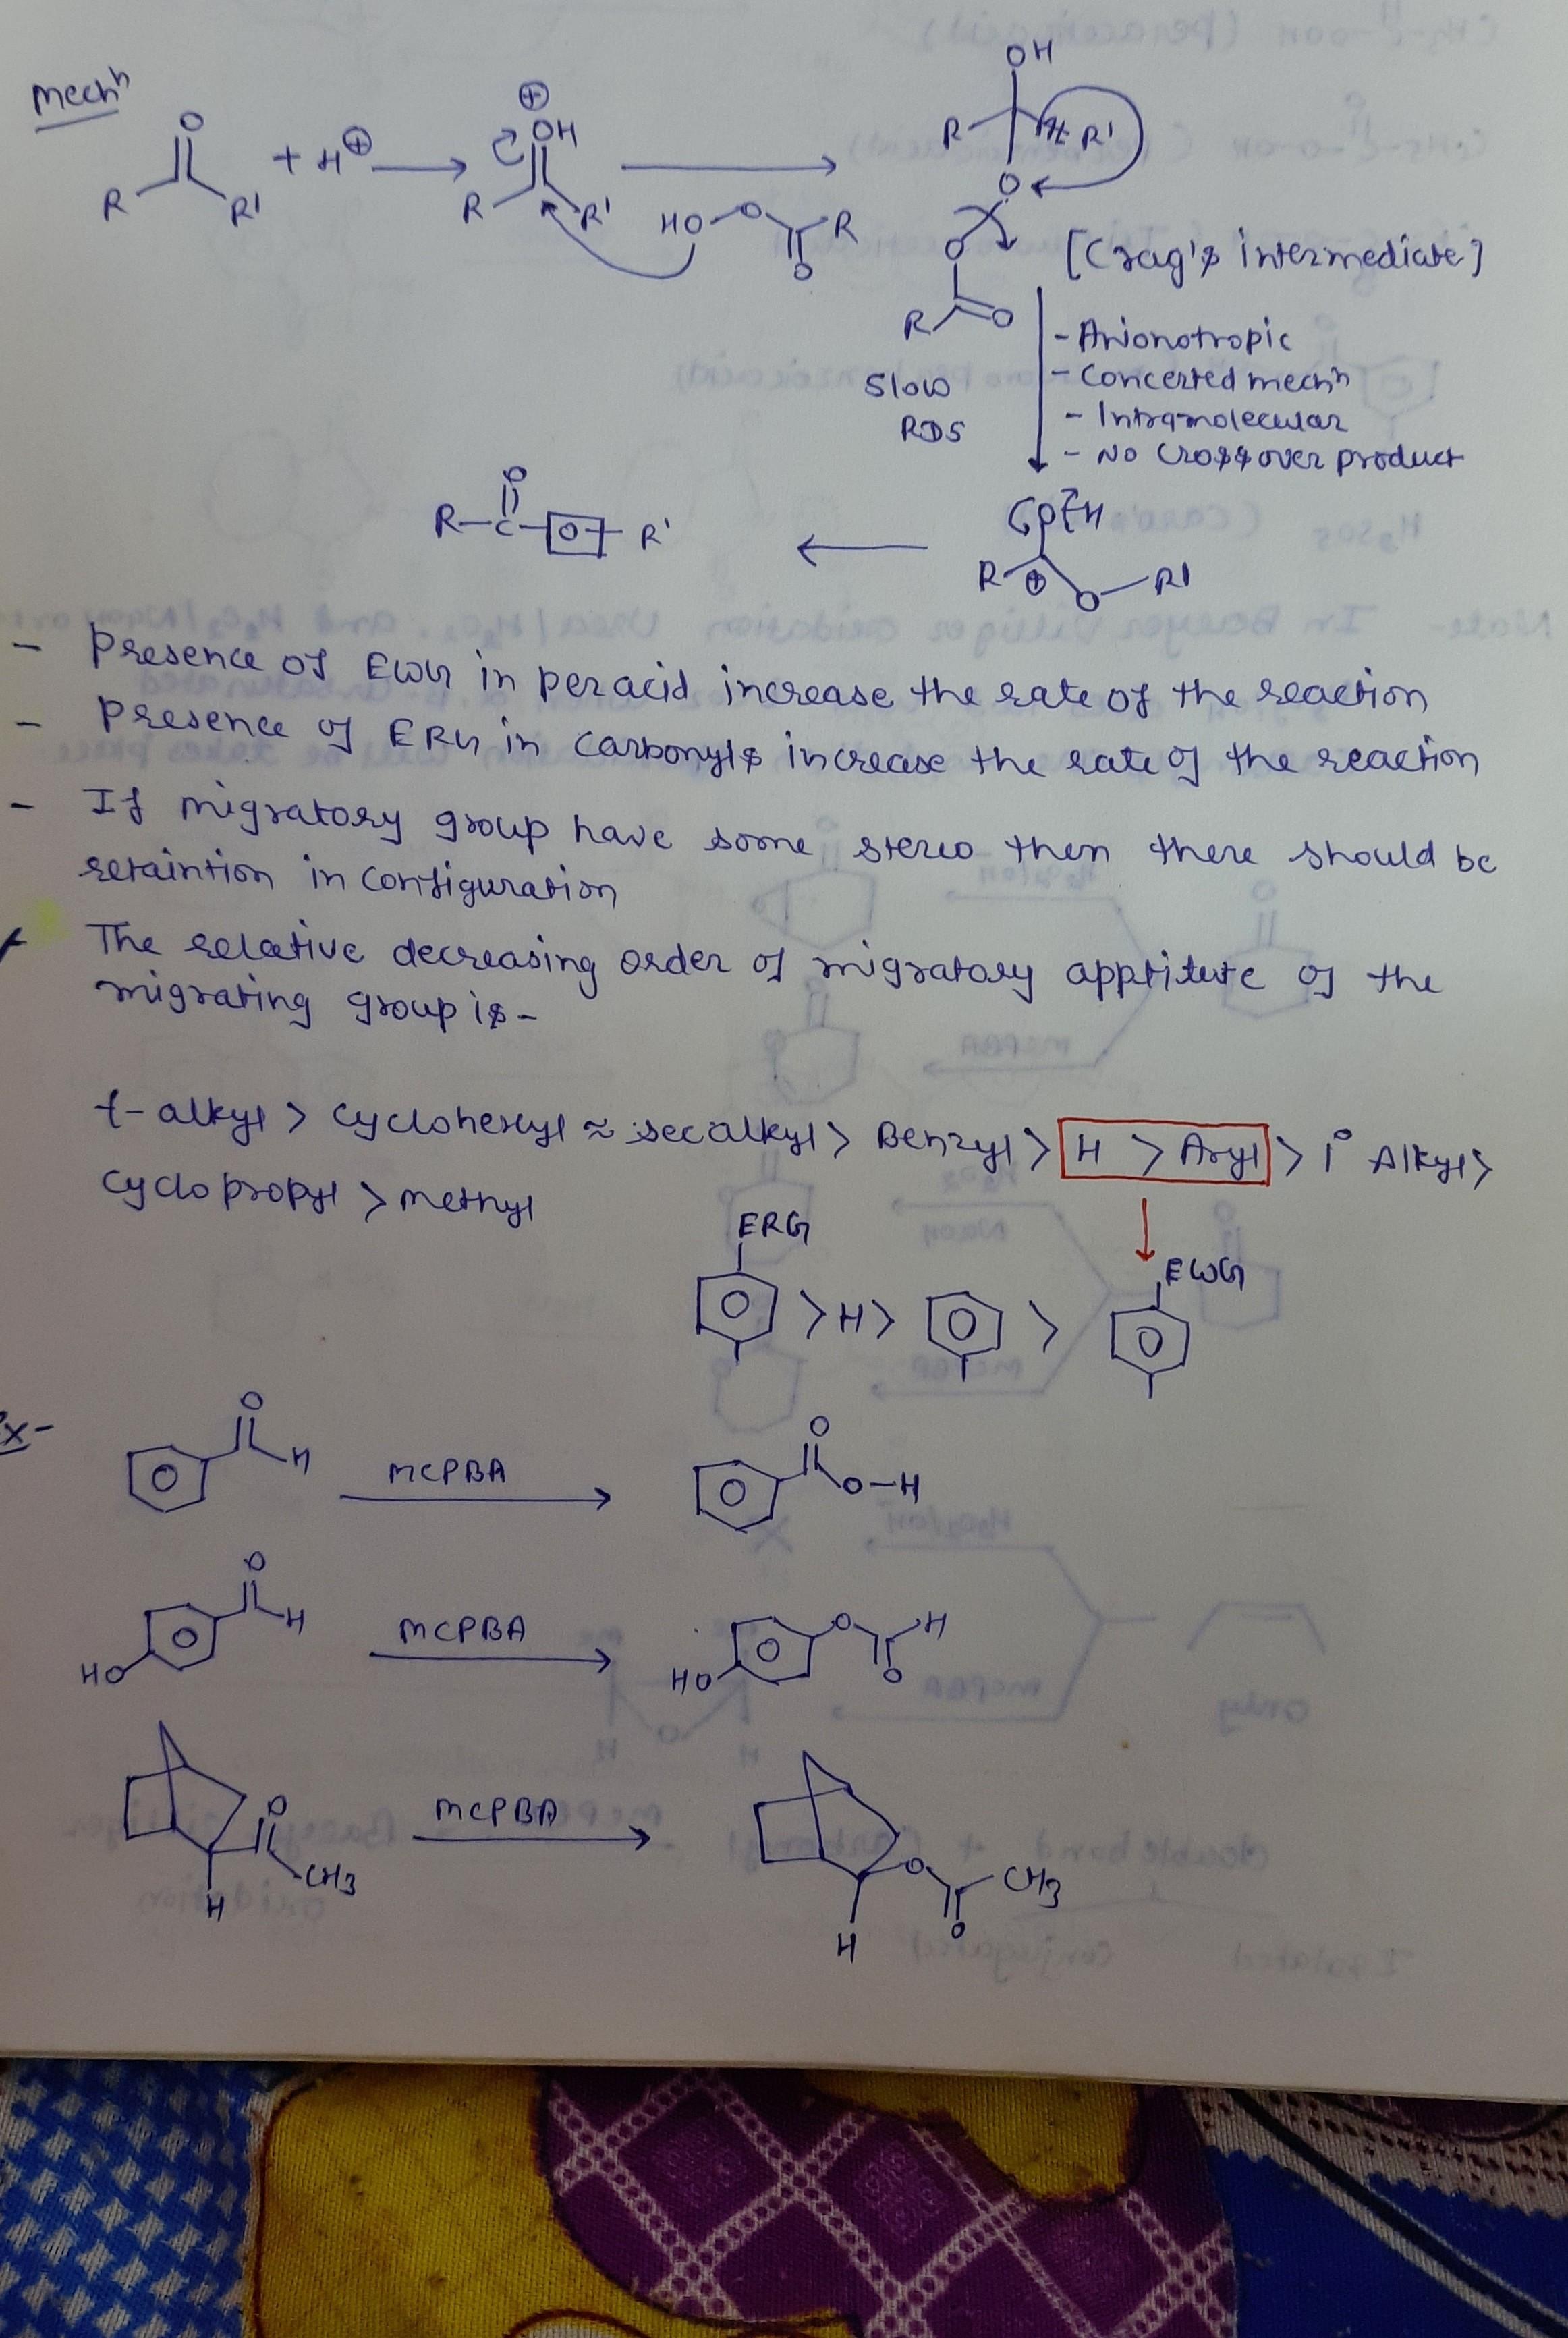 Mechⁿ
O
R R'
+ H⊕
⊕
OH
R R'
HO O R
O
OH
R R'
O
O
R O
[Crag's intermediate]
Slow
RDS
- Anionotropic
- Concerted mechⁿ
- Intramolecular
- No Crossover product
O
R-C-O-R'
O H
R ⊕ O R'
- Presence of EWG in peracid increase the rate of the reaction
- Presence of ERG in carbonyls increase the rate of the reaction
- If migratory group have some stereo then there should be
retaintion in configuration
The relative decreasing order of migratory apptitute of the
migrating group is -
t-alkyl > cyclohexyl ≈ sec alkyl > Benzyl > H > Aryl > 1° Alkyl >
cyclopropyl > methyl
ERG
EWG
> H > >
Ex-
O
H
MCPBA
O
O-H
O
H
HO
MCPBA
O H
O
HO
O
CH3
H
MCPBA
O CH3
O
H